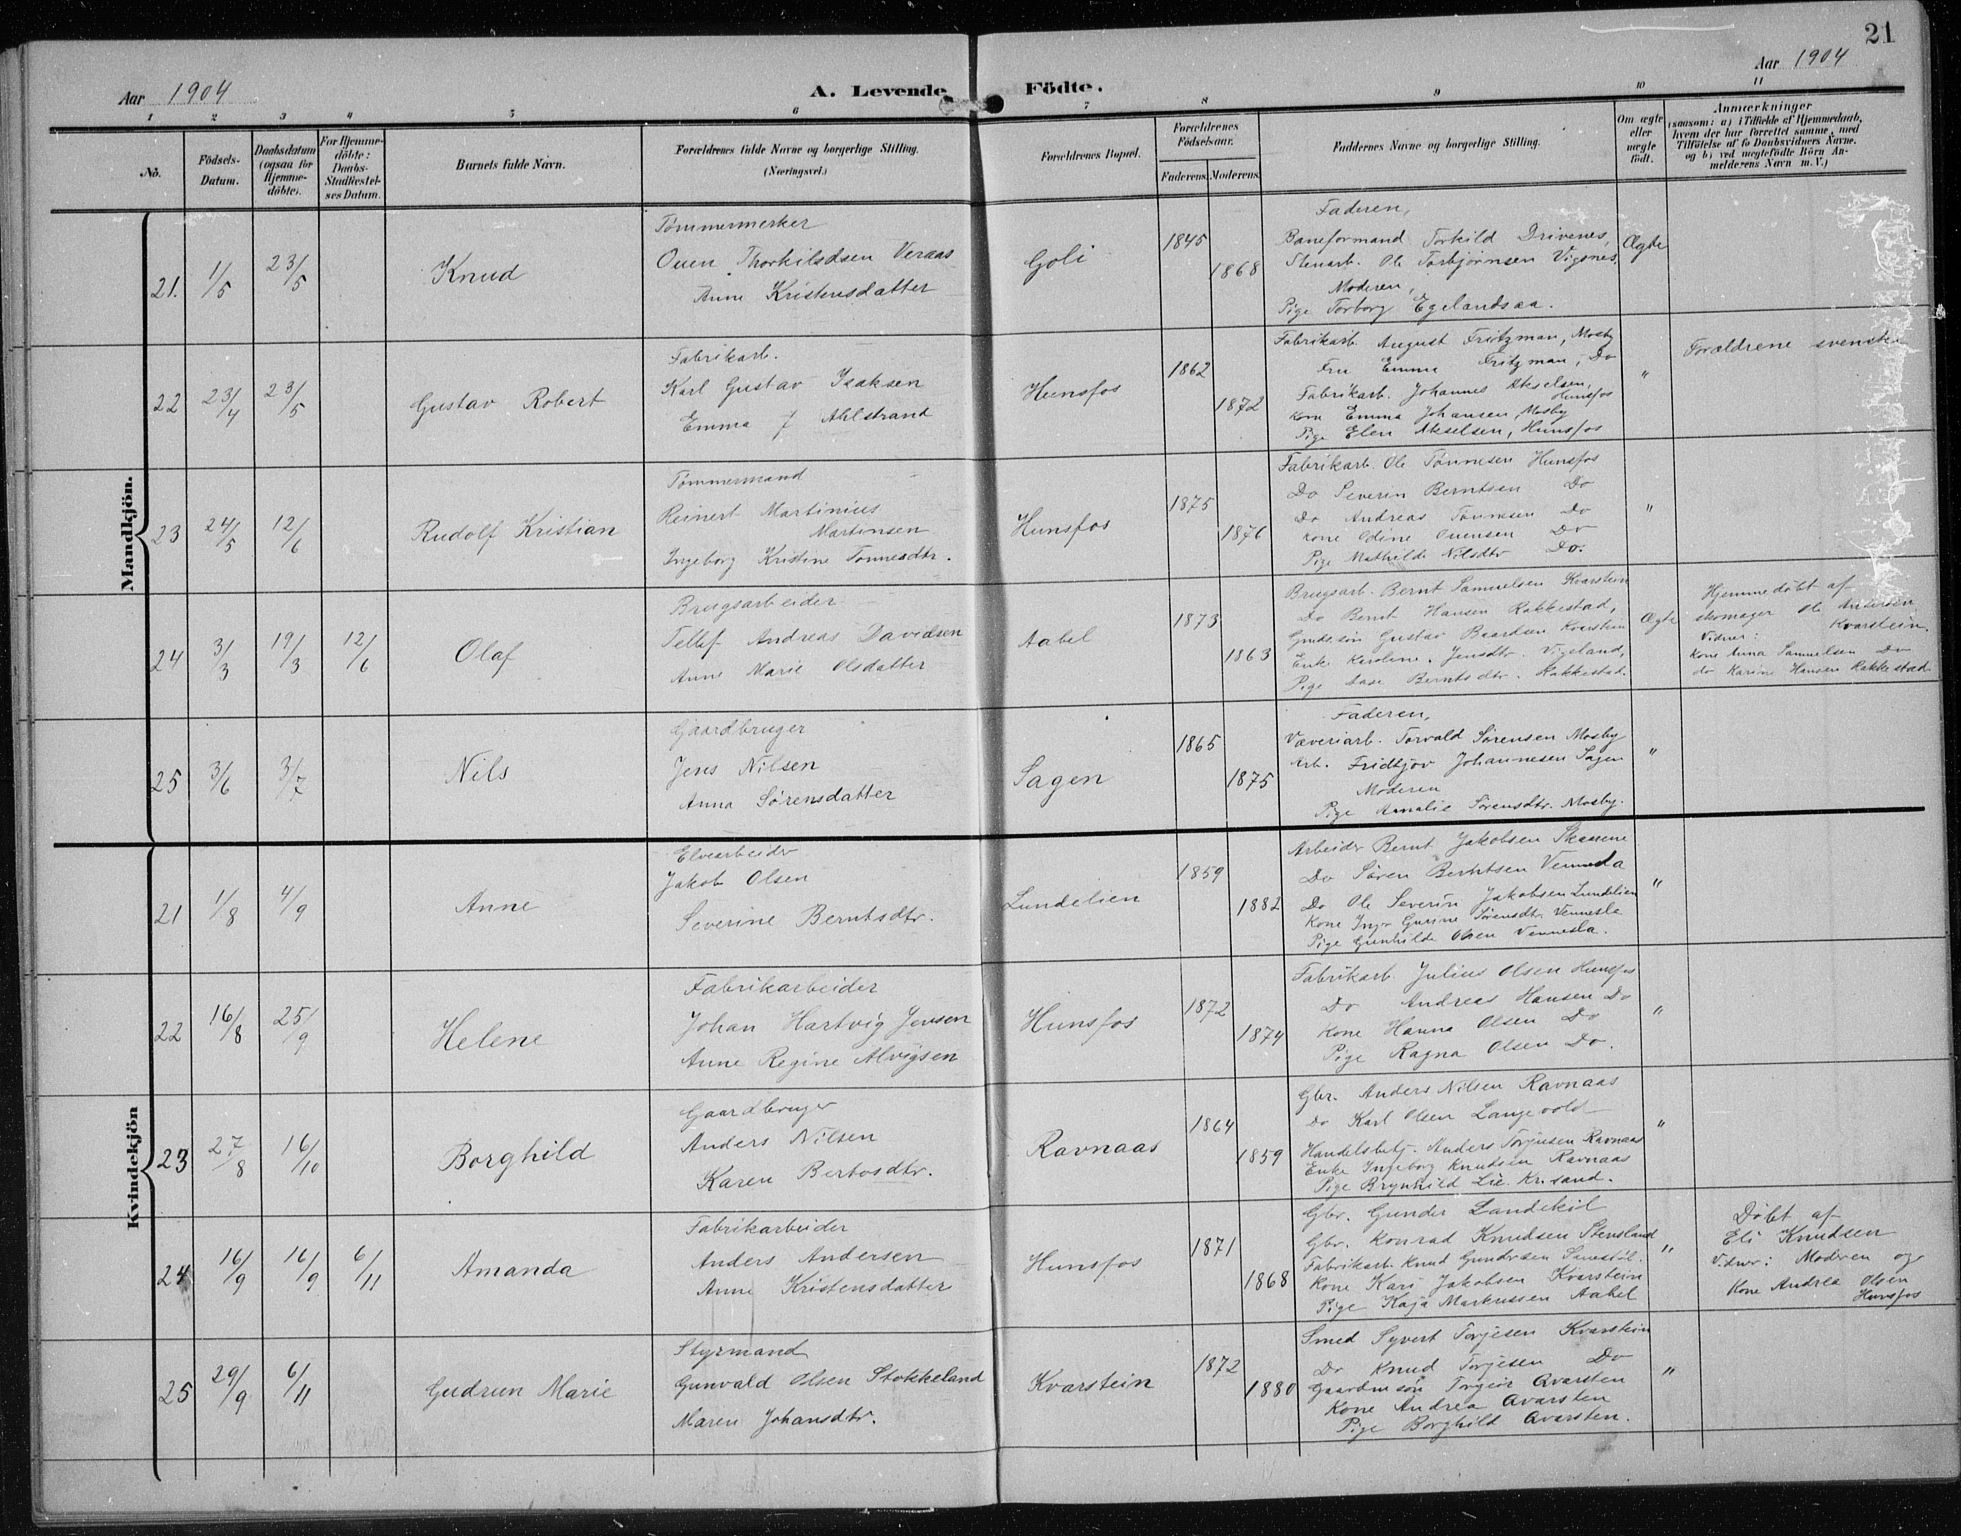 21
Aar 1904
A. Levende Födte.
Aar 1904
1 2 3 4 5 6 7 8 9 10 11
No.
Födsels-Datum.
Daabsdatum (ogsaa for Hjemmedöbte).
For Hjemmedöbte: Daabs-Stadfæstelses Datum.
Barnets fulde Navn.
Forældrenes fulde Navne og borgerlige Stilling. (Næringsvei.)
Forældrenes Bopæl.
Forældrenes Födselsaar.
Faderens. Moderens.
Faddernes Navne og borgerlige Stilling.
Om ægte eller uægte födt.
Anmærkninger
(saasom: a) i Tilfælde af Hjemmedaab, hvem der har forrettet samme, med Tilföielse af to Daabsvidners Navne. og b) ved uægtefödte Börn Anmelderens Navn m. V.)
Mandkjön.
21. 1/5 23/5
Knud
Tømmermerker
Ouen Thorkildsen Veraas
Anne Kristensdatter
Goli
1845
1868
Faderen,
Baneformand Torkild Drivenes,
Stenarb. Ole Torbjørnsen Vigsnes,
Moderen,
Pige Torborg Egelandsaa.
Ægte
22 23/4 23/5
Gustav Robert
Fabrikarb.
Karl Gustav Isaksen
Emma f Ahlstrand
Hunsfos
1862
1872
Fabrikarb. August Fritzman, Mosby
Fru Emma Fritzman, Do
Fabrikarb. Johannes Akselsen, Hunsfos
Kone Emma Johansen, Mosby
Pige Elen Akselsen, Hunsfos
"
Forældrene svenske
23 24/5 12/6
Rudolf Kristian
Tømmermand
Reinert Martinius
Martinsen
Ingeborg Kristine Tønnesdtr.
Hunsfos
1875
1876
Fabrikarb. Ole Tønnesen Hunsfos
Do Severin Berntsen Do
Do Andreas Tønnesen Do
Kone Odine Ouensen Do
Pige Mathilde Nilsdtr Do.
"
24 3/3 19/3 12/6
Olaf
Brugsarbeider
Tellef Andreas Davidsen
Anne Marie Olsdatter
Aabel
1873
1863
Brugsarb. Bernt Samuelsen Kvarstein
Do Bernt Hansen Rakkestad,
Grdr.søn Gustav Baardsen Kvarstein
Enke Karoline Jensdtr. Vigeland,
Pige Aase Berntsdtr. Rakkestad.
Ægte
Hjemmedøbt af
skomager Ole Andersen
Kvarstein.
Vidner:
Kone Anna Samuelsen Do
do Karine Hansen Rakkestad
25 3/6 3/7
Nils
Gaardbruger
Jens Nilsen
Anna Sørensdatter
Sagen
1865
1875
Faderen,
Væveriarb. Torvald Sørensen Mosby
Arb. Fridtjov Johannesen Sagen
Moderen
Pige Amalie Sørensdtr. Mosby.
"
Kvindekjön
21 1/8 4/9
Anne
Elvearbeider
Jakob Olsen
Severine Berntsdtr.
Lundelien
1859
1882
Arbeider Bernt Jakobsen
Do Søren Berntsen Vennesla
Do Ole Severin Jakobsen Lundelien
Kone Inger Gurine Sørensdtr. Vennesla
Pige Gunhilde Olsen Vennesla.
"
22 16/8 25/9
Helene
Fabrikarbeider
Johan Hartvig Jensen
Anne Regine Alvigsen
Hunsfos
1872
1874
Fabrikarb. Julius Olsen Hunsfos
Do Andreas Hansen Do
Kone Hanna Olsen Do
Pige Ragna Olsen Do.
"
23 27/8 16/10
Borghild
Gaardbruger
Anders Nilsen
Karen Bertosdtr.
Ravnaas
1864
1859
Gbr. Anders Nilsen Ravnaas
Do Karl Olsen Langevold
Handelsbetj. Anders Torjusen Ravnaas
Enke Ingeborg Knudsen Ravnaas
Pige Brynhild Lie. Kr.sand.
"
24 16/9 16/9 6/11
Amanda
Fabrikarbeider
Anders Andersen
Anne Kristensdatter
Hunsfos
1871
1868
Gbr. Gunder Landekil
Gbr. Konrad Knudsen Stensland
Fabrikarb. Knud Gundersen
Kone Kari Jakobsen Kvarstein
Pige Kaja Markussen Aabel
"
Døbt af
Eli Knudsen
Vidner: Moderen og
Kone Andrea Olsen
Hunsfos
25 29/9 6/11
Gudrun Marie
Styrmand
Gunvald Olsen Stokkeland
Maren Johansdtr.
Kvarstein
1872
1880
Smed Syvert Torjesen Kvarstein
Do Knud Torjesen Do
Gaardm.søn Torgeir Qvarsten
Kone Andrea Qvarsten
Pige Borghild Qvarsten.
"